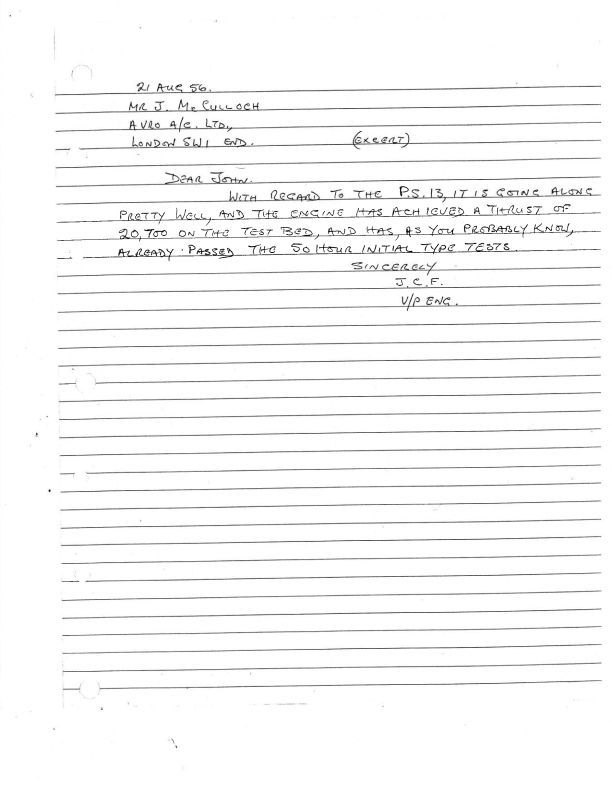 21 AUG 56.
MR J. McCULLOCH
AVRO A/C. LTD,
LONDON SW1 END. (EXCERT)
DEAR JOHN.
WITH REGARD TO THE P.S.13, IT IS GOING ALONG
PRETTY WELL, AND THE ENGINE HAS ACHIEVED A THRUST OF
20,700 ON THE TEST BED, AND HAS, AS YOU PROBABLY KNOW,
ALREADY PASSED THE 50 HOUR INITIAL TYPE TESTS.
SINCERELY
J.C.F.
V/P ENG.